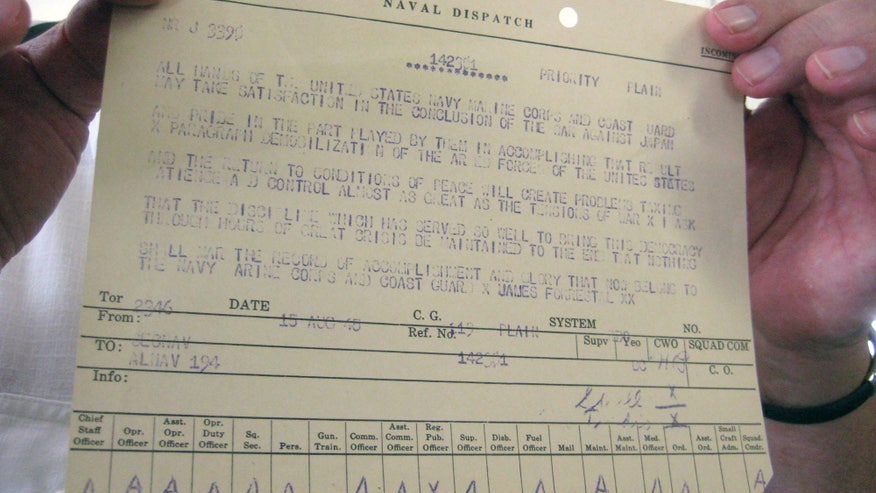 NAVAL DISPATCH
NR J 339
INCOMIN
PRIORITY PLAIN
ALL HANDS OF T UNITED STATES NAVY MARINE CORPS AND COAST UARD
MAY TAKE SATISFACTION IN THE CONCLUSION OF THE WAR AGAINST JAPAN
AND PRIDE IN THE PART PLAYED BY THEM IN ACCOMPLISHING THAT RESULT
X PARAGRAPH DEMOBILIZATI N OF THE AR ED FORCES OF THE UNITED STATES
AND THE RETURN TO CONDITIONS OF PEACE WILL CREATE PROBLEMS TAXING
ATIENCE A D CONTROL ALMOST AS GREAT AS THE TENSIONS OF WAR X I ASK
THAT THE DISCI LINE WHICH HAS SERVED SO WELL TO BRING THIS DEMOCRACY
THROUGH HOURS OF GREAT CRISIS BE MAINTAINED TO THE END T AT NOTHING
SHALL MAR THE RECORD OF ACCOMPLISHMENT AND GLORY THAT NOW BELONG TO
THE NAVY ARINE CORPS AND COAST GUARD X JAMES FORRESTAL XX
Tor 2346 DATE 15 AUG 45 C. G. PLAIN SYSTEM NO.
From: SECNAV Ref. No. Supv Yeo CWO SQUAD COM
TO: ALNAV 194 C. O.
Info: X
X
Chief Staff Officer Opr. Officer Asst. Opr. Officer Opr. Duty Officer Sq. Sec. Pers. Gun. Train. Comm. Officer Asst. Comm. Officer Reg. Pub. Officer Sup. Officer Disb. Officer Fuel Officer Mail Maint. Asst. Maint. Med. Officer Ord. Asst. Ord. Small Craft Adm. Squad. Comdr.
A A A A A A A A A X A A A A A